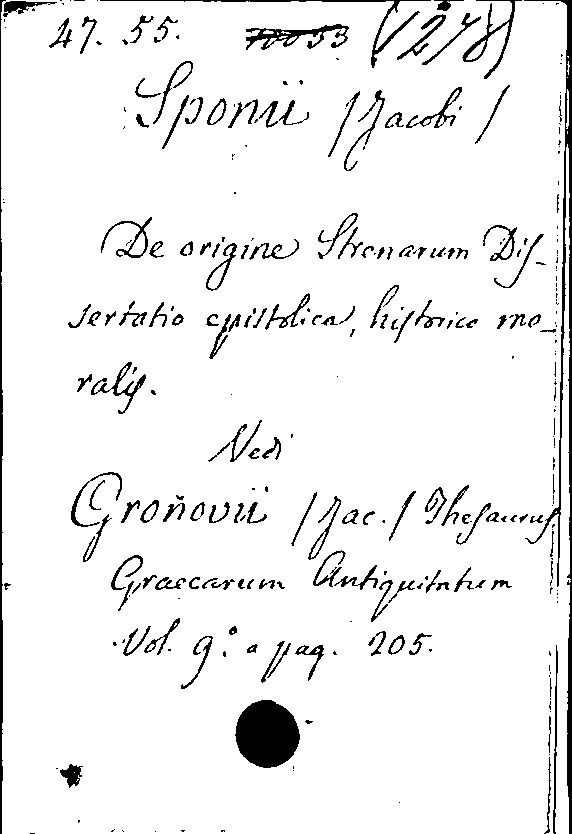 47. 55. 10053 (1278)
Sponii /Jacobi/
De origine Strenarum Dis-
sertatio epistolica, historico mo-
ralis.
Vedi
Groñovii /Jac./ Thesaurus
Graecarum Antiquitatum
Vol. 9.° a pag. 205.